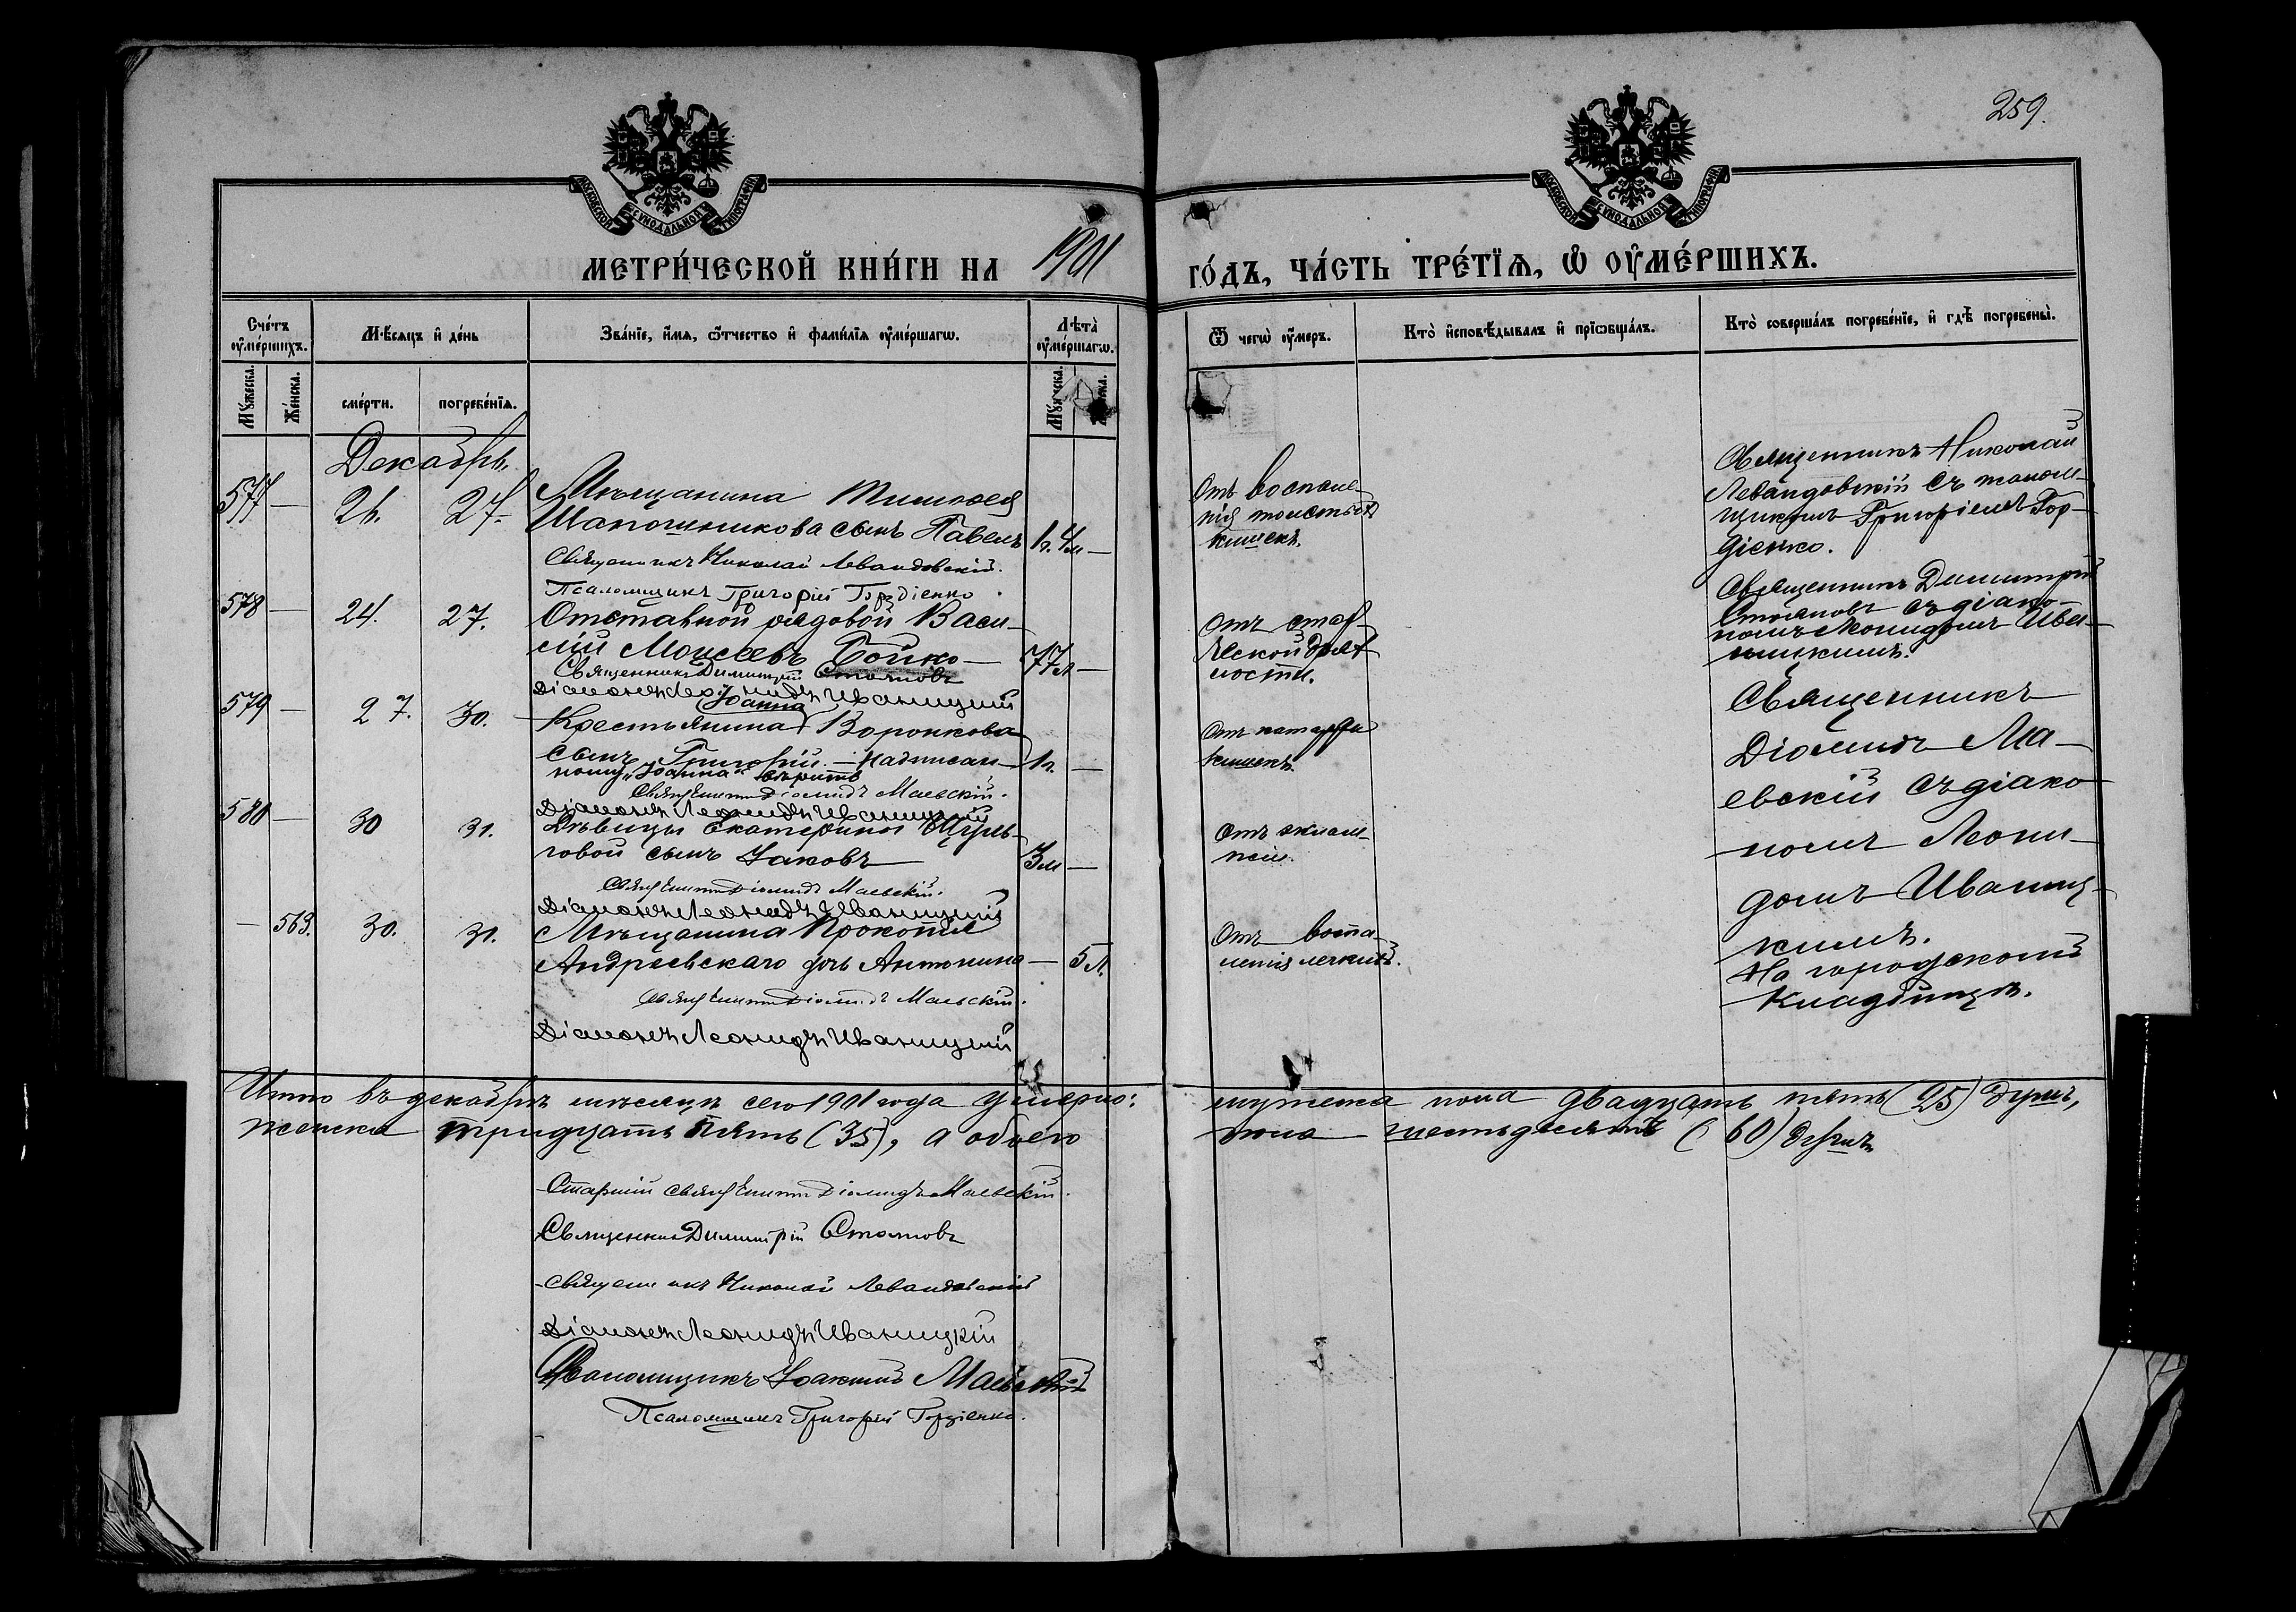 259.
МОСКОВСКОЙ СУНОДАЛЬНОЙ ТИПОГРАФІИ
МОСКОВСКОЙ СУНОДАЛЬНОЙ ТИПОГРАФІИ
МЕТРИ́ЧЕСКОЙ КНИ́ГИ НА 1901 ГО́ДЪ, ЧА́СТЬ ТРЕ́ТЇѦ, Ѡ ОУМЕ́РШИХЪ.
Сче́тъ оуме́ршихъ.
Мѣ́сяцъ и де́нь
Зва́нїе, и́мя, ѻ́тчество и фами́лїя оуме́ршагѡ.
Лѣта̀ оуме́ршагѡ.
Ѿ чегѡ̀ оу́меръ.
Кто̀ исповѣ́дывалъ и прїѡбща́лъ.
Кто̀ соверша́лъ погребе́нїе, и гдѣ̀ погребены̀.
Му́жеска.
Же́нска.
сме́рти.
погребе́нїя.
Му́жеска.
Декабрь.
577 — 26. 27.
Мѣщанина Тимофея
Шапошникова сынъ Павелъ 1 г. 4 м —
Священникъ Николай Левандовскій.
Псаломщикъ Григорій Гордіенко.
Отъ воспале-
нія толстыхъ
кишекъ.
Священникъ Николай
Левандовскій съ псалом-
щикомъ Григоріемъ Гор-
діенко.
578 — 24. 27.
Отставной рядовой Васи-
лій Моисеевъ Бойко — 77 л —
Священникъ Димитрій Стояновъ
Діаконъ Леонидъ Иваницкій
Отъ стар-
ческой дрях-
лости.
Священникъ Димитрій
Стояновъ съ діако-
номъ Леонидомъ Ива-
ницкимъ.
579 — 27. 30.
Іоанна
Крестьянина Воронкова
сынъ Григорій. — Надписан-
ному „Іоанна" вѣрить 1 г. —
Священникъ Діомидъ Маевскій.
Діаконъ Леонидъ Иваницкій
Отъ катарра
кишекъ.
Священникъ
Діомидъ Ма-
евскій съ діако-
номъ Леони-
домъ Иваниц-
кимъ.
На городскомъ
кладбищѣ.
580 — 30 31.
Дѣвицы Екатерины
сынъ Іаковъ — 3 м —
Священникъ Діомидъ Маевскій.
Діаконъ Леонидъ Иваницкій
Отъ эклам-
псіи.
— 563. 30. 31.
Мѣщанина Прокопія
Андреевскаго дочь Антонина — 5 л.
Священникъ Діомидъ Маевскій.
Діаконъ Леонидъ Иваницкій
Отъ воспа-
ленія легкихъ.
Итого въ декабрѣ мѣсяцѣ сего 1901 года умерло: мужеска пола двадцать пять (25) душъ,
женска тридцать пять (35), а обоего пола шестьдесятъ (60) душъ.
Старшій священникъ Діомидъ Маевскій.
Священникъ Димитрій Стояновъ
Священникъ Николай Левандовскій
Діаконъ Леонидъ Иваницкій
Псаломщикъ Іоакимъ Маевскій
Псаломщикъ Григорій Гордіенко.